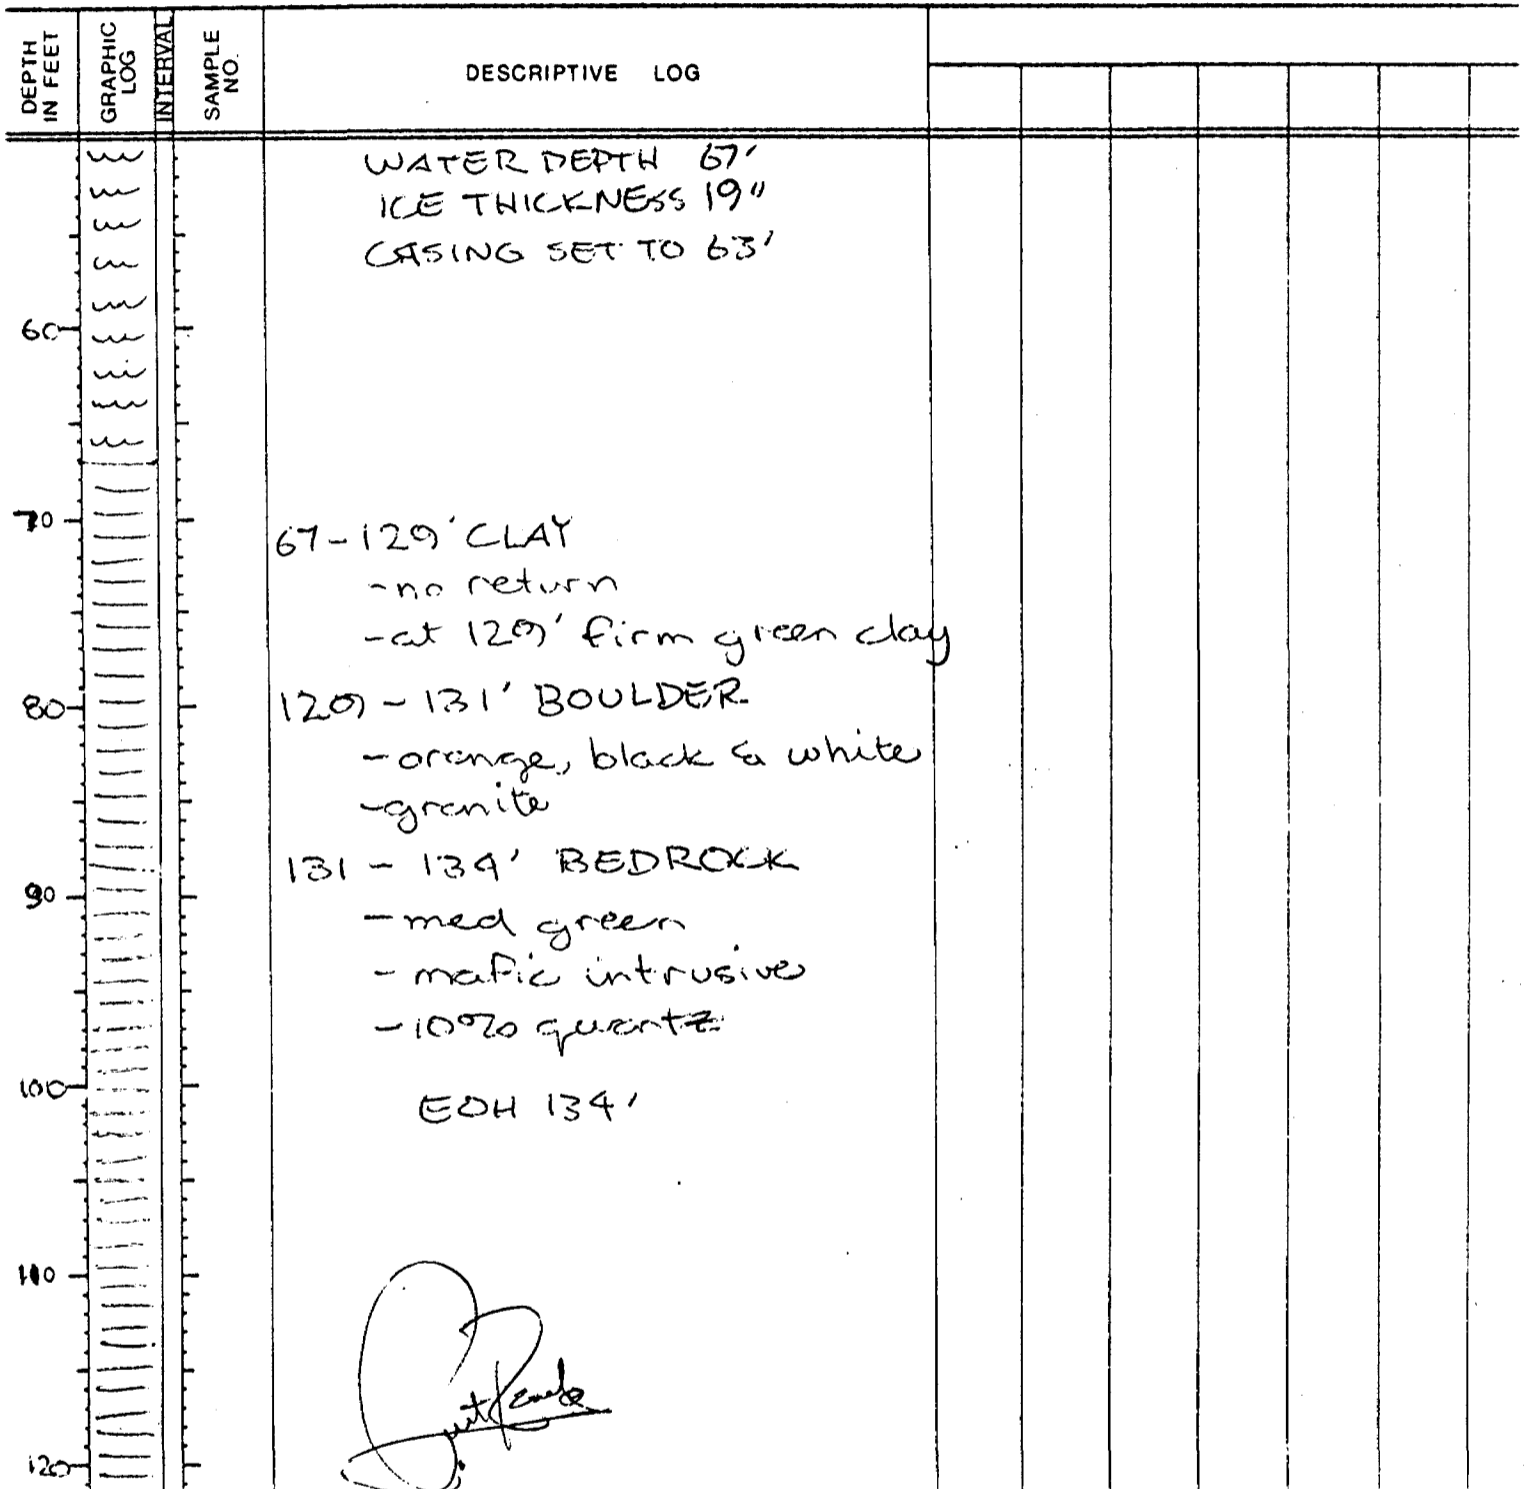 DEPTH IN FEET
GRAPHIC LOG
INTERVAL
SAMPLE NO.
DESCRIPTIVE LOG
WATER DEPTH 67'
ICE THICKNESS 19"
CASING SET TO 63'
60
70
67-129' CLAY
-no return
-at 129' firm green clay
80
129-131' BOULDER
-orange, black & white
-granite
131 - 134' BEDROCK
90
-med green
- mafic intrusive
-10% quartz
100
EOH 134'
110
120